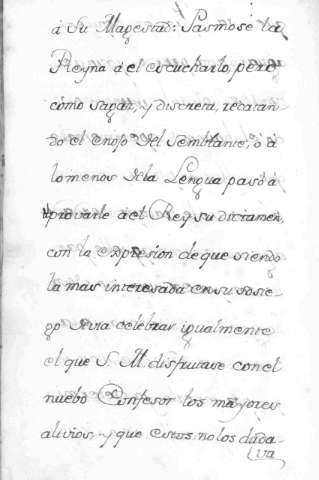 á Su Magestad: Pasmose la
Reyna á el escucharlo, pero
como sagaz, y discreta, recatan-
do el enojo del semblante, ó á
lo menos de la Lengua pasó á
aprovarle á el Rey su dictamen,
con la expresion de que siendo
la mas interesada en su sosie-
go devia celebrar igualmente
el que S. M. disfrutase con el
nuebo Confesor los mayores
alivios, y que estos no los duda-
va